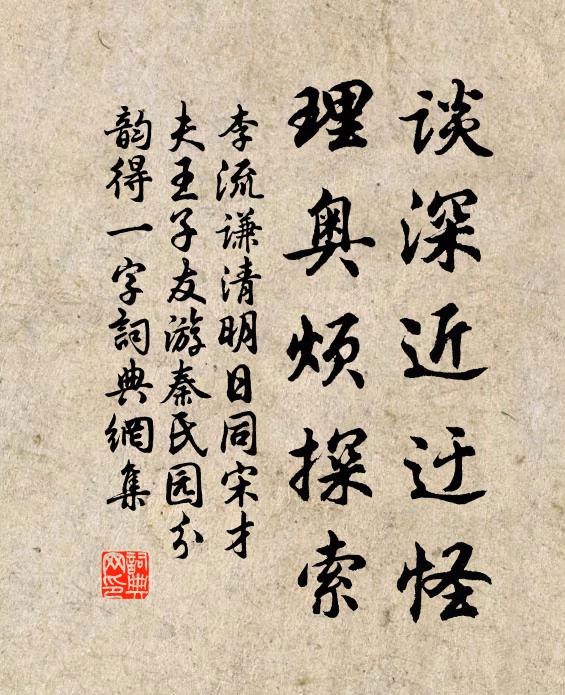 谈深近迂怪
理奥烦探索
李流谦清明日同宋才
夫王子友游秦民园分
韵得一字詞典網集
詞典
网印